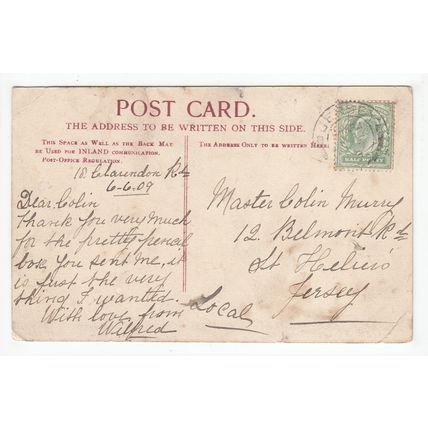 POST CARD.
THE ADDRESS TO BE WRITTEN ON THIS SIDE.
THIS SPACE AS WELL AS THE BACK MAY
BE USED FOR INLAND COMMUNICATION.
POST-OFFICE REGULATION.
THE ADDRESS ONLY TO BE WRITTEN HERE.
18 Claundon Rd
6-6.09
Dear Colin
Thank you very much
for the pretty pencial
box you sent me, it
is just the very
thing I wanted.
With love from
Wilfred
Master Colin Murry
12. Belmont Rd
St Helier's
Jersey
Local
JERSEY
HALF PENNY